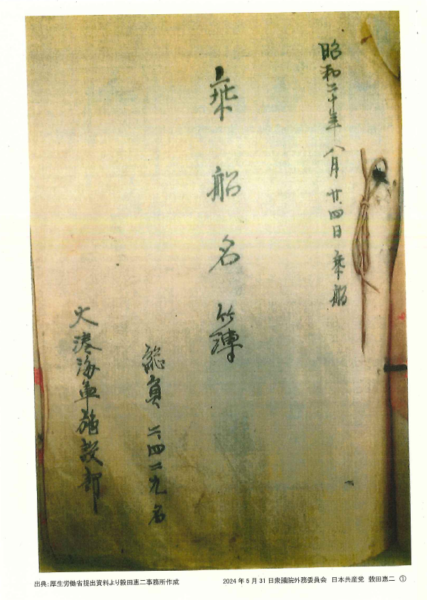 昭和二十年八月廿四日乗船
乗船名簿
総員 二四二九名
大湊海軍施設部
出典:厚生労働省提出資料より穀田恵二事務所作成
2024年5月31日衆議院外務委員会 日本共産党 穀田恵二 ①